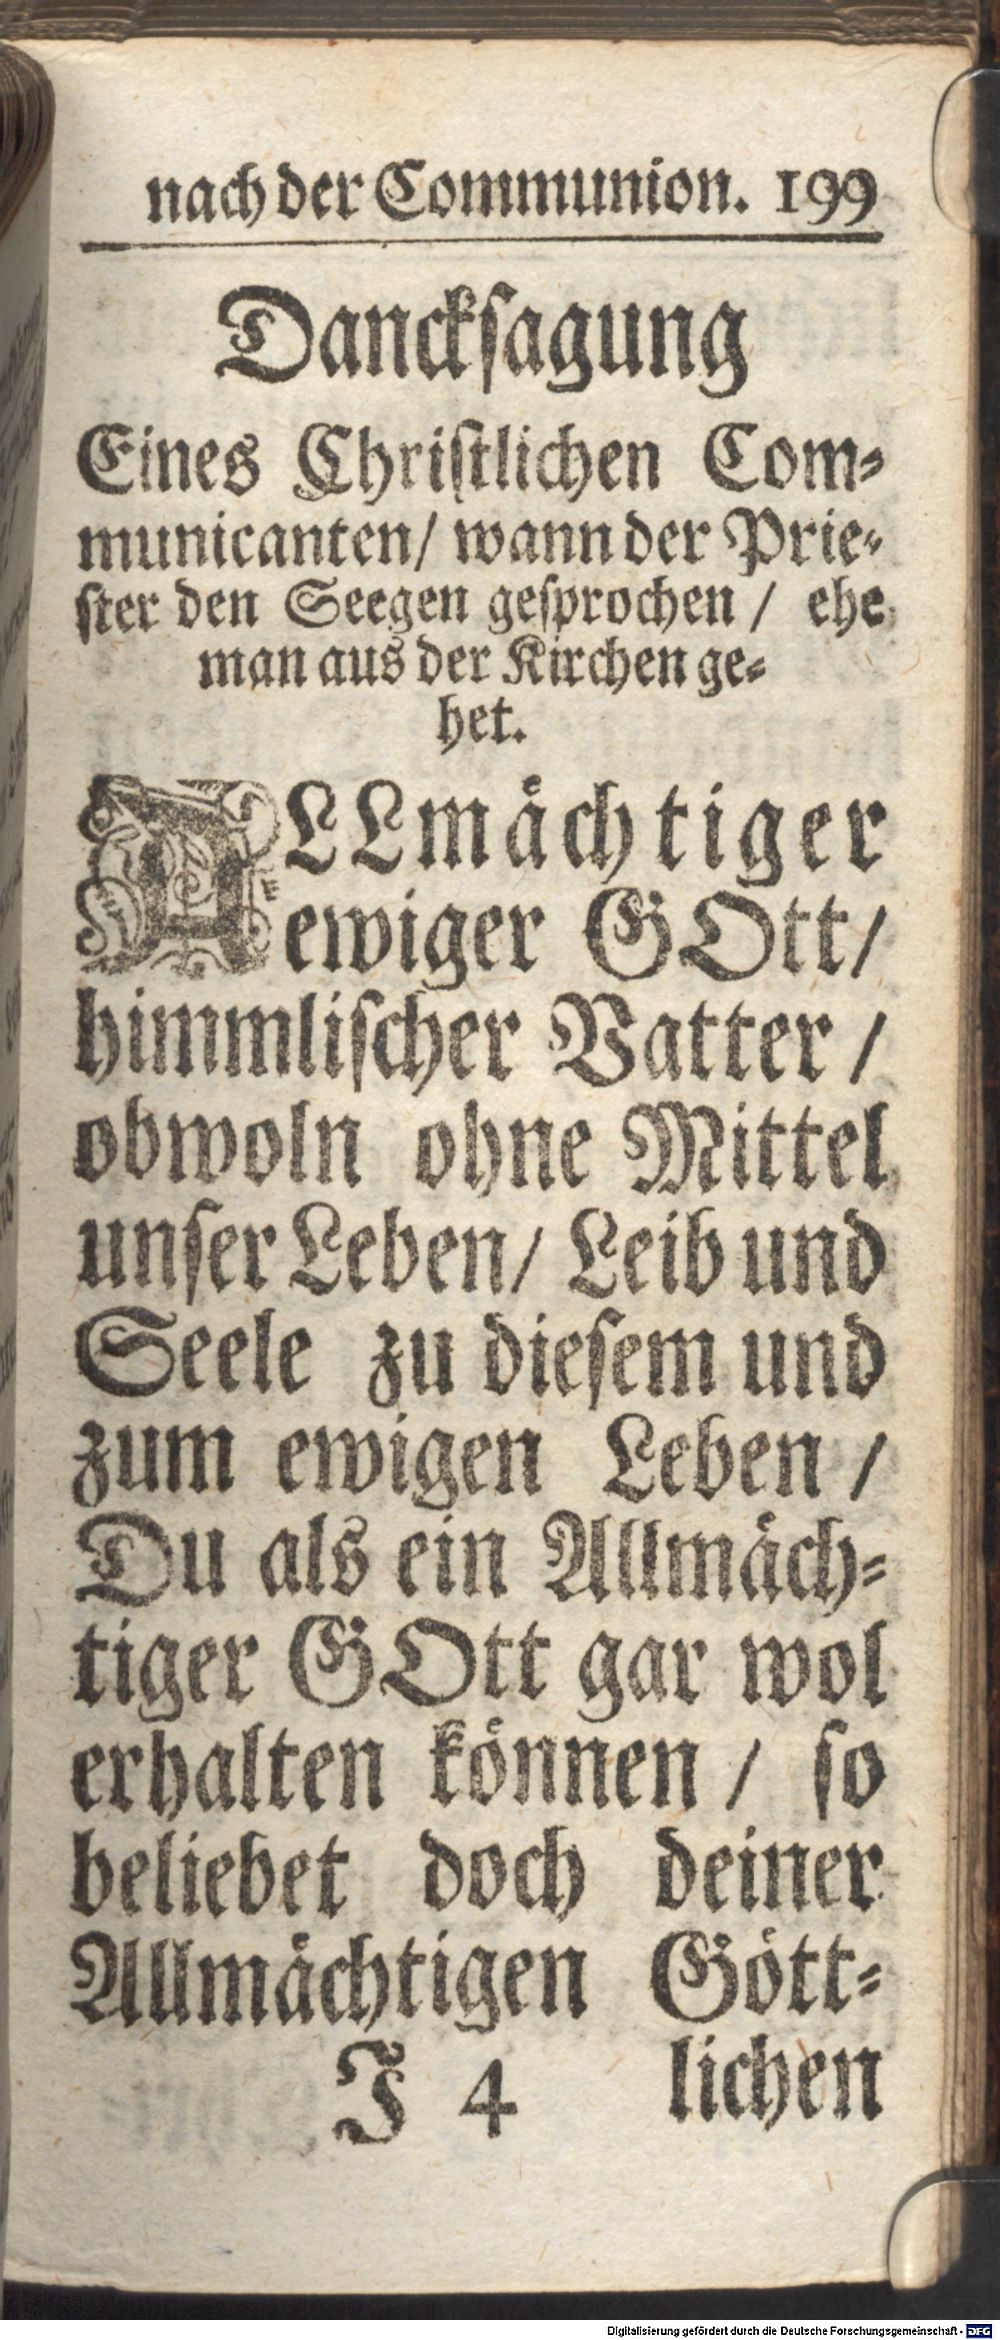 nach der Communion. 199
Danckſagung
Eines Chriſtlichen Com⸗
municanten/ wann der Prie⸗
ſter den Seegen geſprochen / ehe
man aus der Kirchen ge⸗
het.
ALLmaͤchtiger
ewiger GOtt/
himmliſcher Vatter /
obwoln ohne Mittel
unſer Leben/ Leib und
Seele zu dieſem und
zum ewigen Leben /
Du als ein Allmaͤch⸗
tiger GOtt gar wol
erhalten koͤnnen / ſo
beliebet doch deiner
Allmaͤchtigen Goͤtt⸗
J 4 lichen
Digitalisierung gefördert durch die Deutsche Forschungsgemeinschaft - DFG